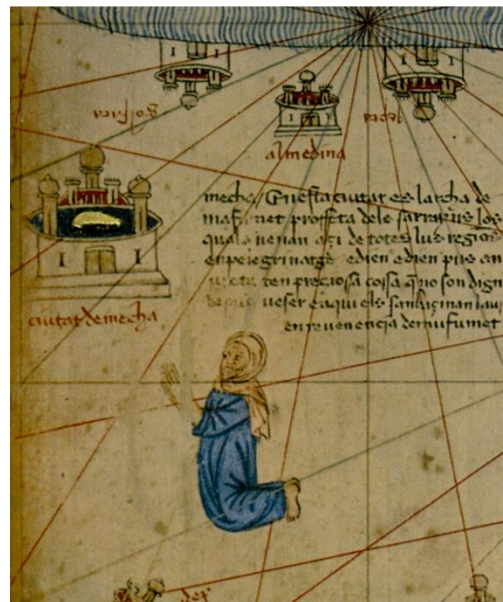 almedina
mecha En esta ciutat es larcha de
mafumet proffeta dels sarrayns los
quals venan açi de totes lus regions
en pelegrinatge e dien e dien pus an
ten preciosa cosa q no son dign
de pus veser e aqui els
en reverencia de mufumet
ciutat de mecha